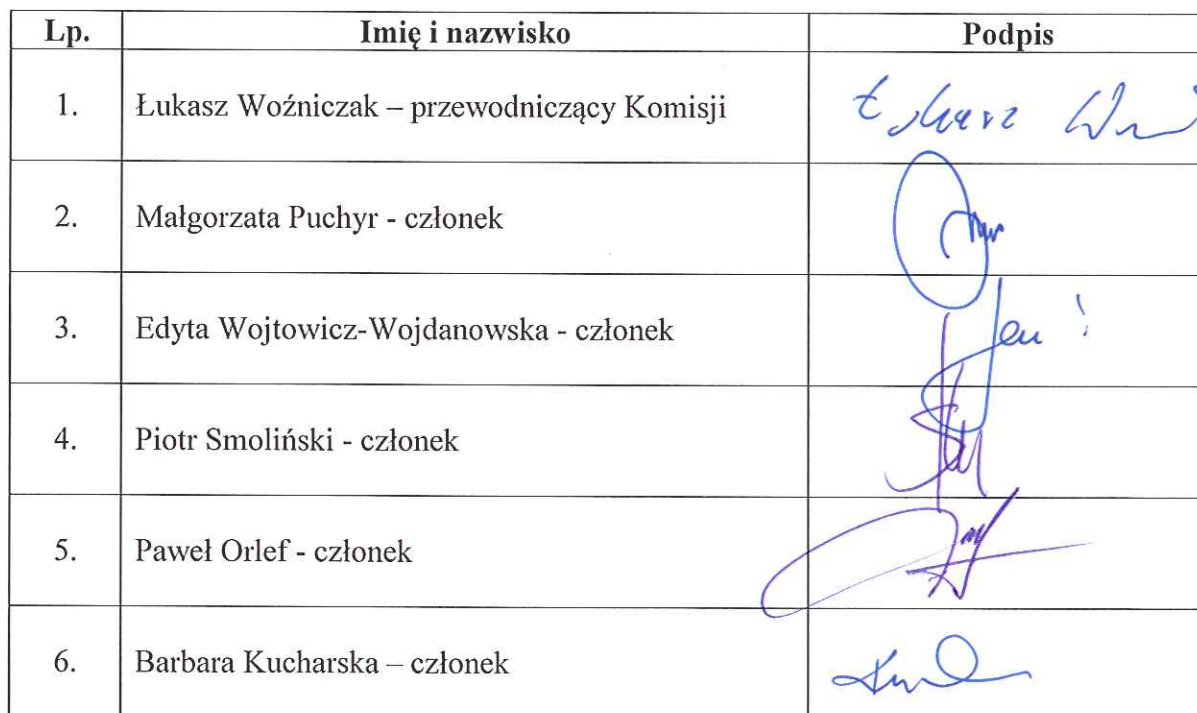 Lp. Imię i nazwisko Podpis
1. Łukasz Woźniczak – przewodniczący Komisji Łukasz
2. Małgorzata Puchyr - członek
3. Edyta Wojtowicz-Wojdanowska - członek
4. Piotr Smoliński - członek
5. Paweł Orlef - członek
6. Barbara Kucharska – członek